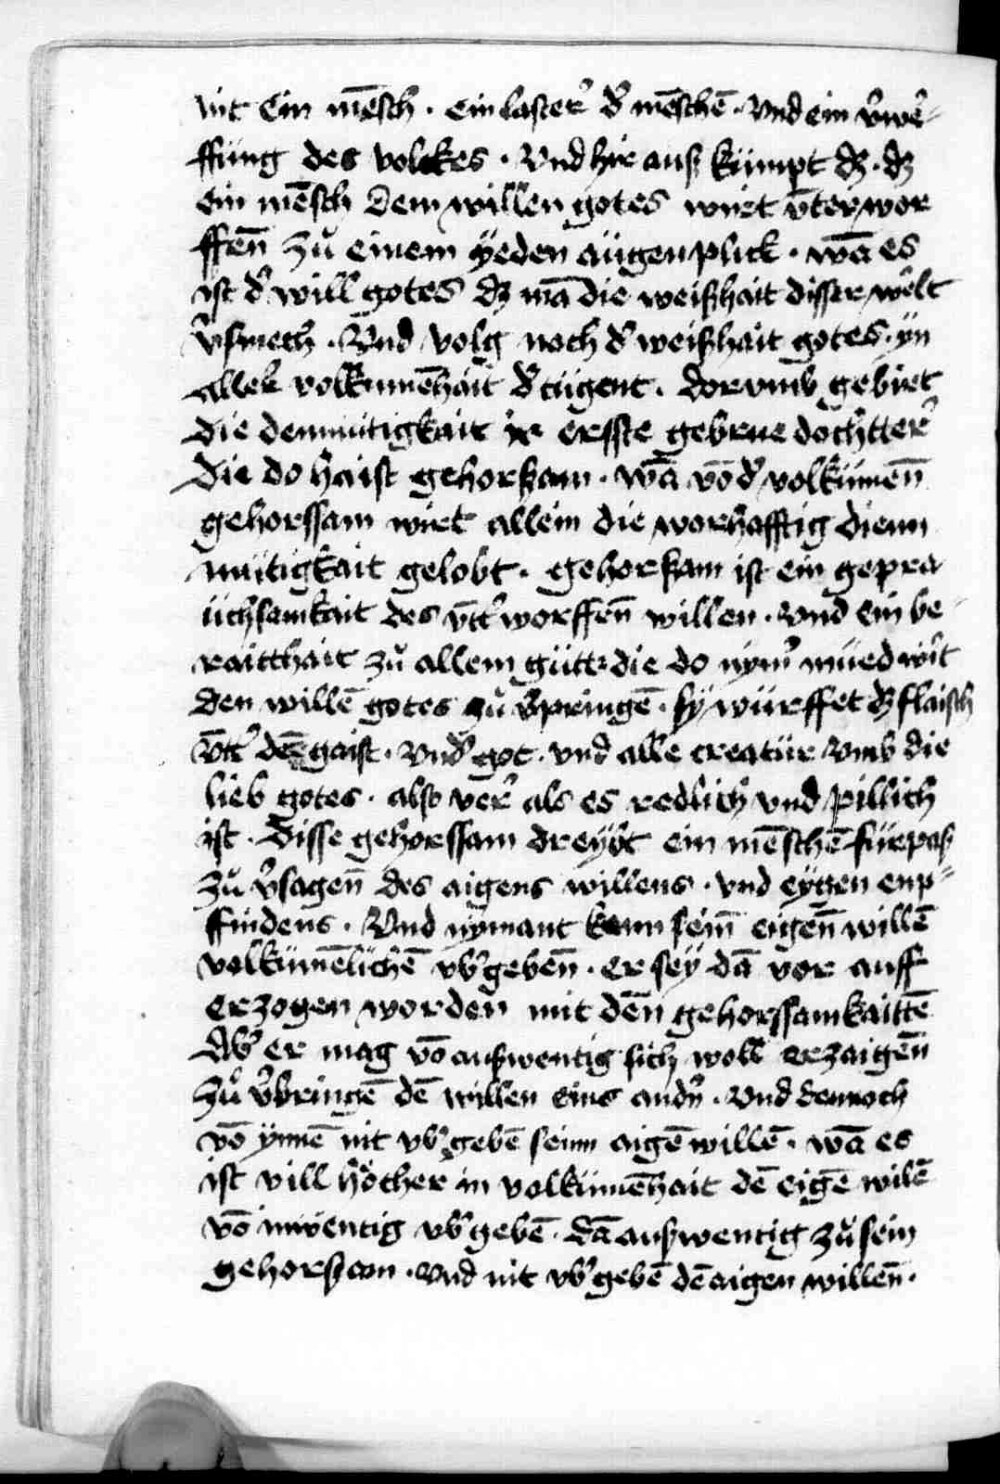 nit Ein mēsch · ein laster̉ d̉ mēschē · Vnd ein v̉wer̉-
ffūng des volckes · Vnd hie auß kumpt dz · dz
ein mēsch dem willen gotes wirt v̄terwor
ffen̄ zů einem yeden augenplick · wā es
ist d̉ will gotes dz mā die weißhait disser welt
v̉smech · Vnd volg noch d̉ weißhait gotes · yn
aller volkumēhait d̉ tugent · Dorvmb gebirt
die demmütigkait ir ersste geborne dochtter̉
Die do haist gehorßam · wā vō d̉ volkumēn̄
gehorssam wirt allein die worhafftig diem
mütigkait gelobt · gehorßam ist ein gepra
üchsamkait des v̄tt̉worffen̄ willen · Vnd ein be-
raitthait zů allem gütt · die do nym̉ müed wirt
den willē gotes zů v̉pringē · sy würffet dz flaisch
v̄tt̉ dē gaist · Vnd̉ got · vnd alle creatür vmb die
lieb gotes · also ver̉ als es redlich vnd pillich
ist · Disse gehorssam dreybt ein mēschē fürpaß
zů v̉sagen̄ des aigens willens · vnd eygen enp-
ffindens · Vnd nymant kann sein̄ eigen̄ willē
volkumēlichē vb̉geben̄ · er sey dā vor auff
erzogen worden mit den̄ gehorssamkaittē
Ab̉ er mag vō außwentig sich woll erzaigen̄
zů v̉bringē dē willen eins and̉n · Vnd dennoch
vō ynnē nit vb̉gebē seinn aigē willē · wā es
ist vill höcher in volkumēhait dē eigē wilē
vō inwentig vb̉gebē · dā außwentig zů sein
gehorßam · Vnd nit vb̉gebē dē aigen willen̄ ·